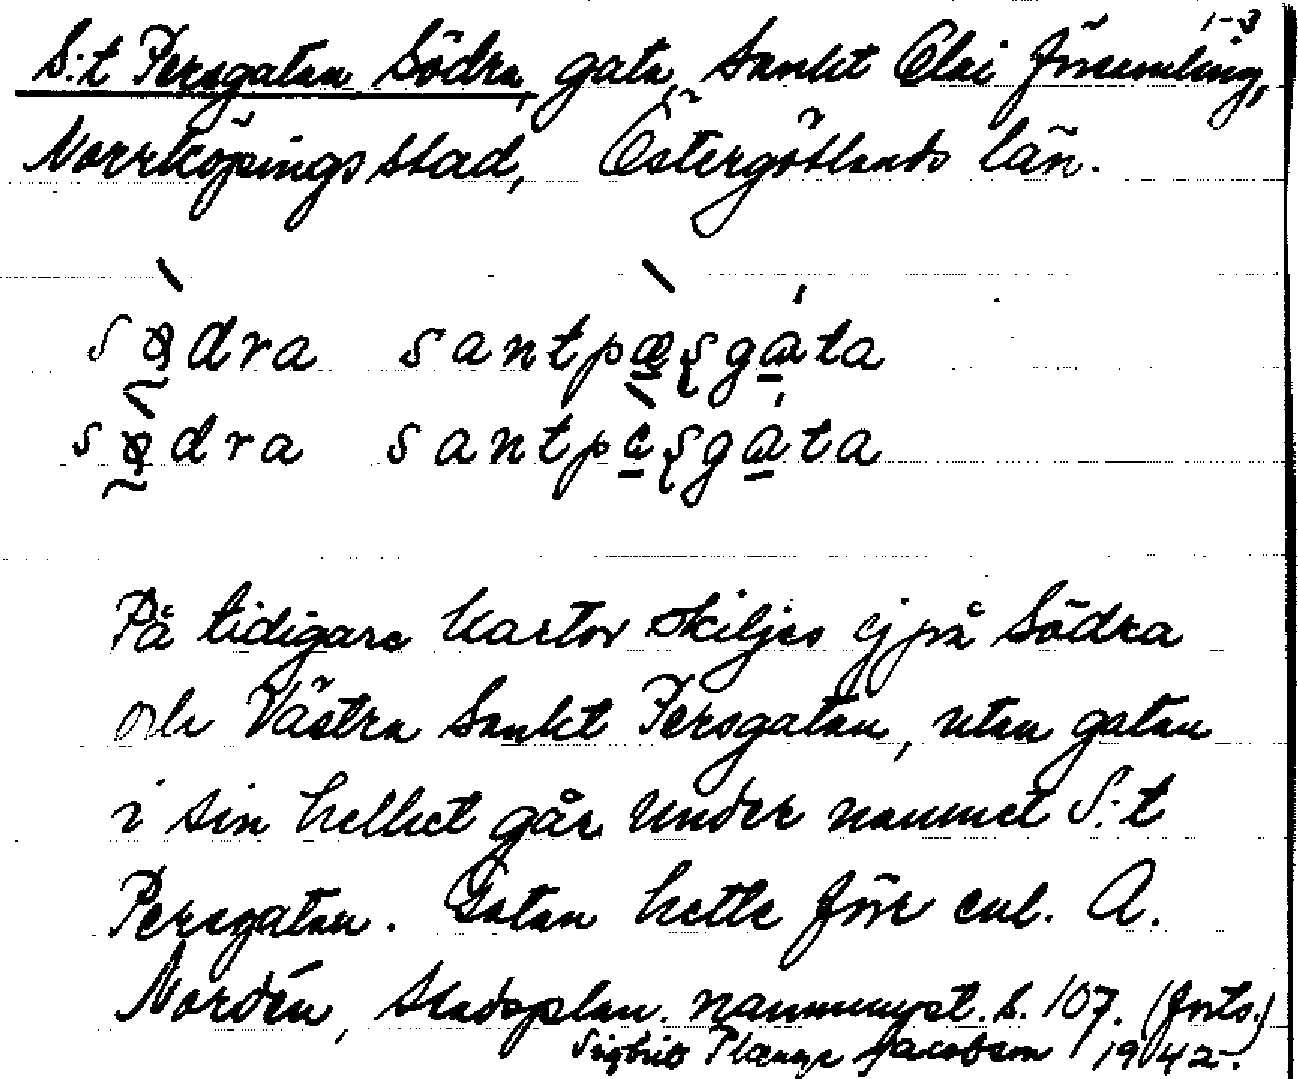 1-3
S:t Persgatan Södra, gata, Sankt Olai församling,
Norrköpings stad, Östergötlands län.
sødra santpæʂgata
sødra santpeʂgata
På tidigare kartor skiljes ej på Södra
och Västra Sankt Persgatan, utan gatan
i sin helhet går under namnet S:t
Persgatan. Gatan hette förr enl. A.
Nordén, Stadsplan. namnmyst. s. 107. (forts.)
Sigbrit Plænge Jacobson 1942.